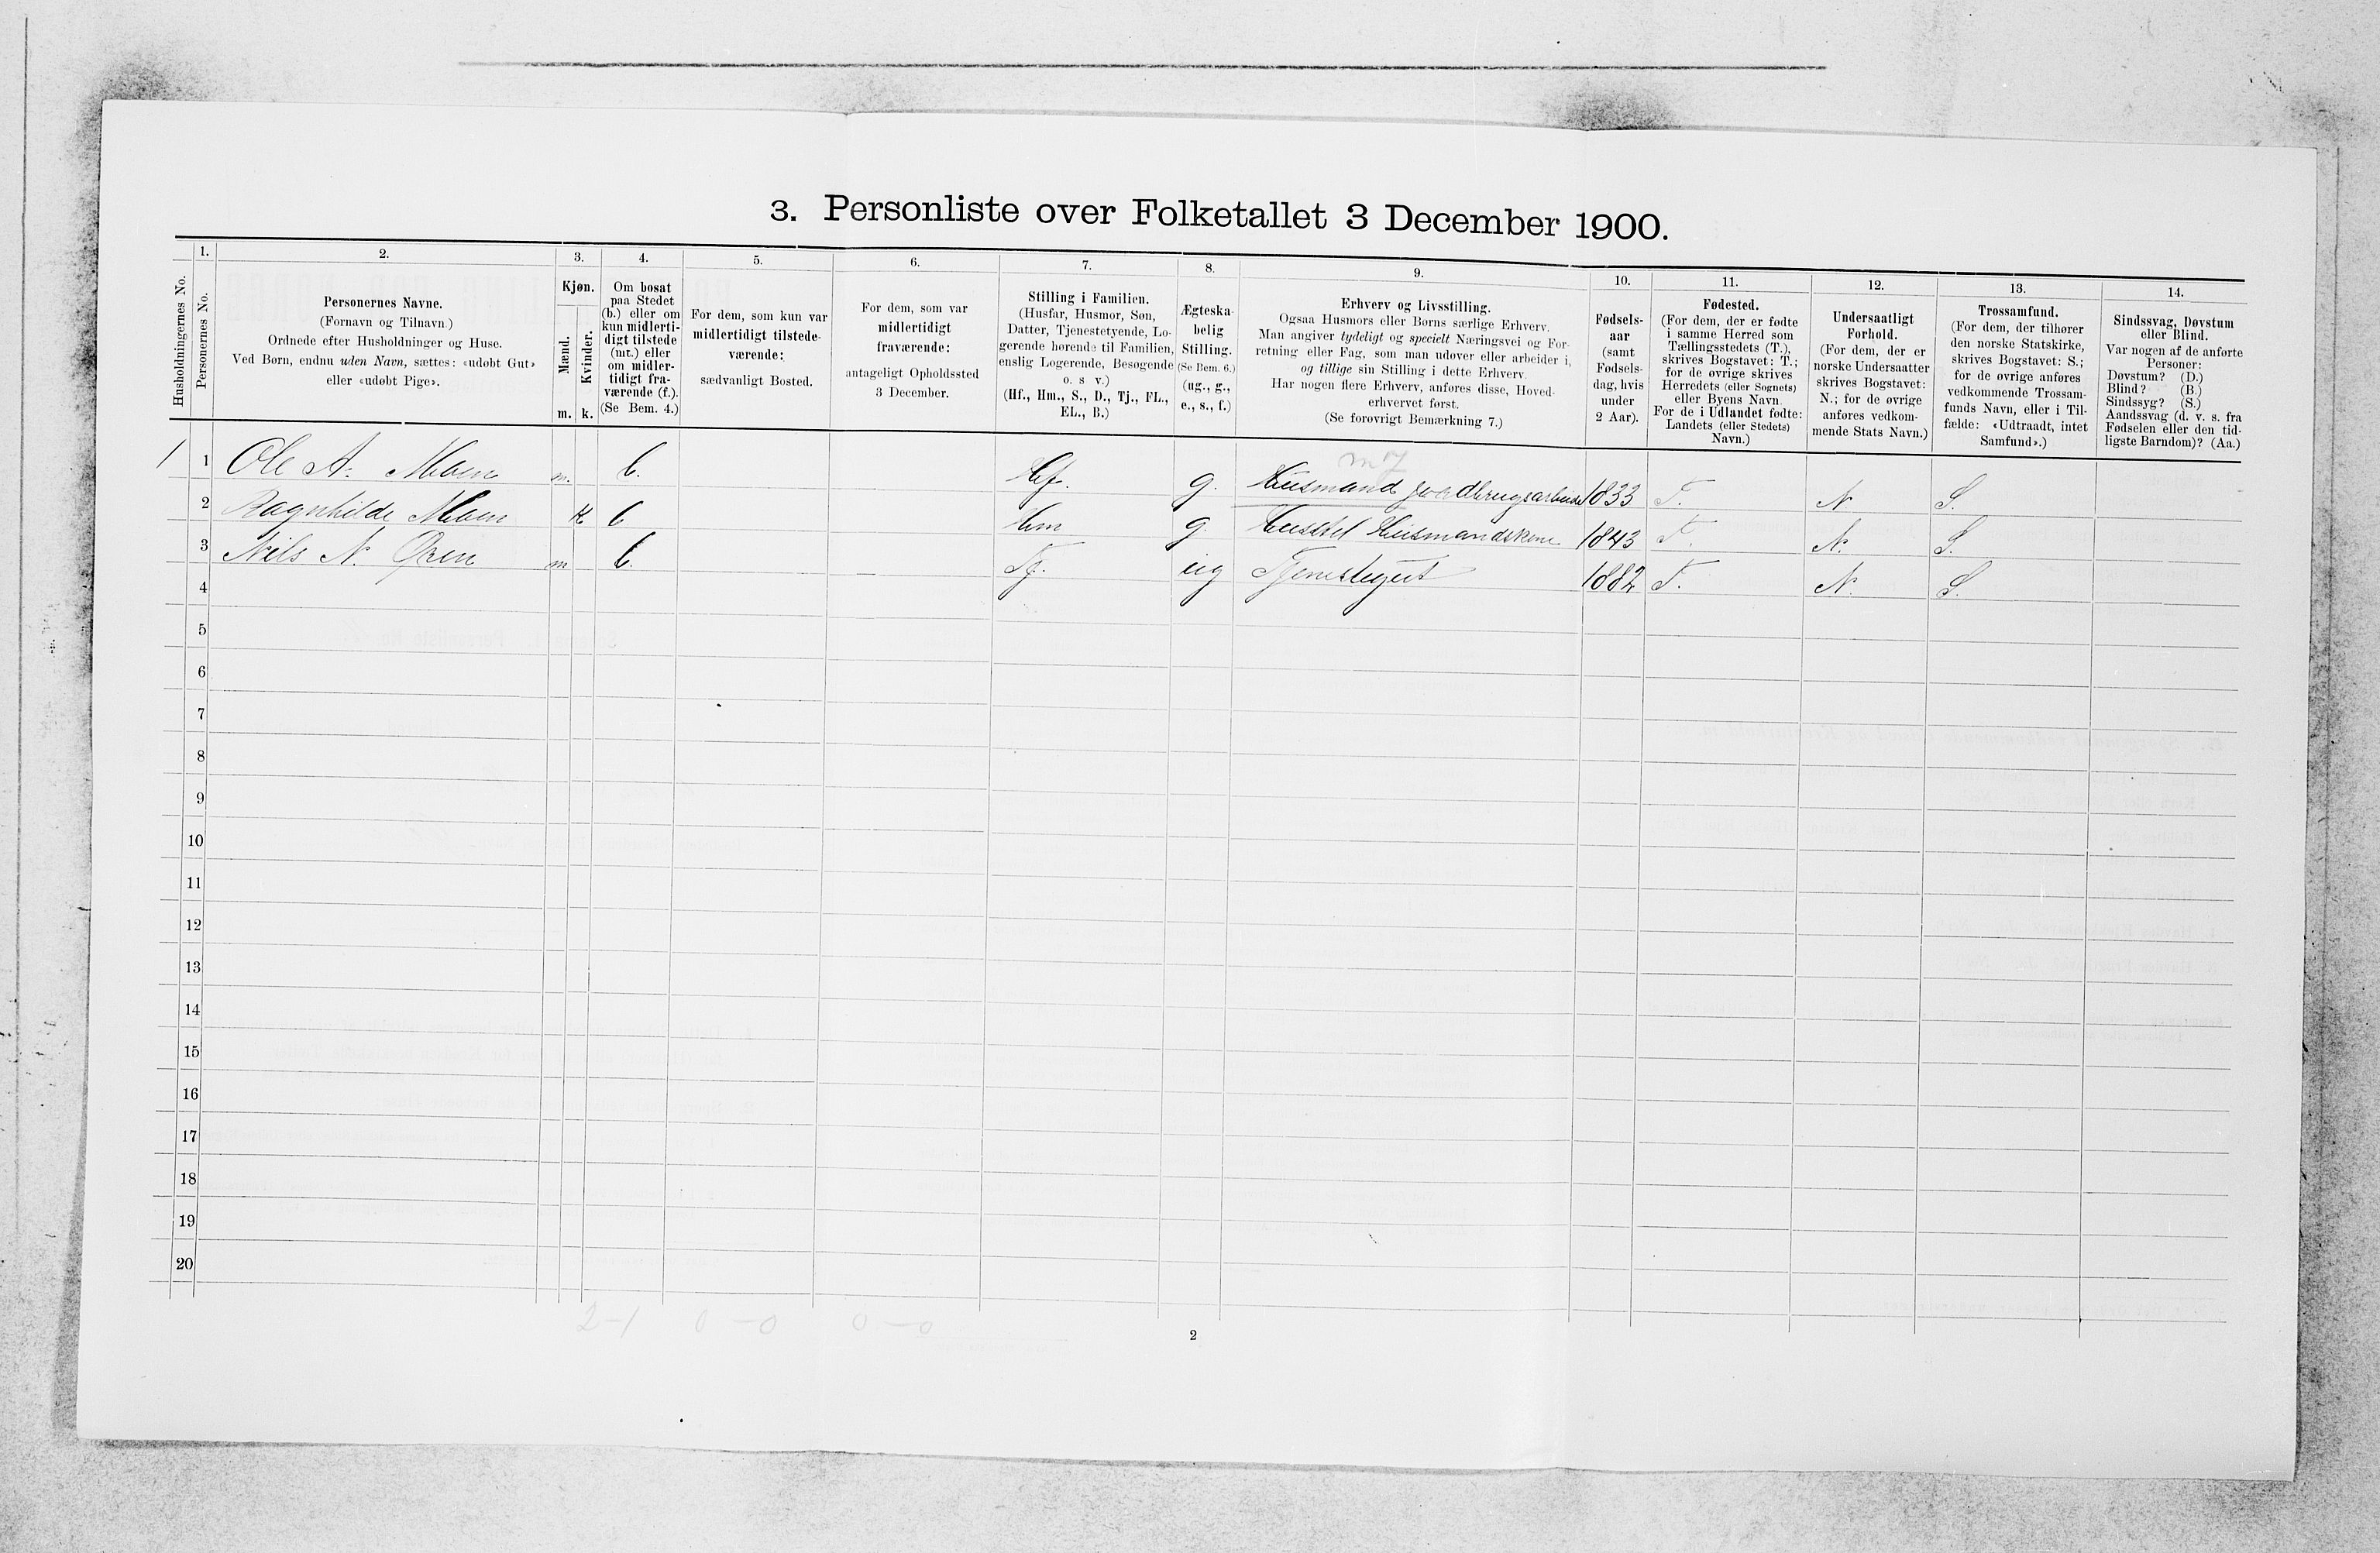 3. Personliste over Folketallet 3 December 1900.
1. 2. 3. 4. 5. 6. 7. 8. 9. 10. 11. 12. 13. 14.
Husholdningernes No.
Personernes No.
Personernes Navne.
(Fornavn og Tilnavn.)
Ordnede efter Husholdninger og Huse.
Ved Børn, endnu uden Navn, sættes: «udøbt Gut»
eller «udøbt Pige».
Kjøn.
Mænd.
Kvinder.
m. k.
Om bosat
paa Stedet
(b.) eller om
kun midlerti-
digt tilstede
(mt.) eller
om midler-
tidigt fra-
værende (f.).
(Se Bem. 4.)
For dem, som kun var
midlertidigt tilstede-
værende:
sædvanligt Bosted.
For dem, som var
midlertidigt
fraværende:
antageligt Opholdssted
3 December.
Stilling i Familien.
(Husfar, Husmor, Søn,
Datter, Tjenestetyende, Lo-
gerende hørende til Familien,
enslig Logerende, Besøgende
o. s v.)
(Hf., Hm., S., D., Tj., FL.,
EL., B.)
Ægteska-
belig
Stilling.
(Se Bem. 6.)
(ug., g.,
e., s., f.)
Erhverv og Livsstilling.
Ogsaa Husmors eller Børns særlige Erhverv.
Man angiver tydeligt og specielt Næringsvei og For-
retning eller Fag, som man udøver eller arbeider i,
og tillige sin Stilling i dette Erhverv.
Har nogen flere Erhverv, anføres disse, Hoved-
erhvervet først.
(Se forøvrigt Bemærkning 7.)
Fødsels-
aar
(samt
Fødsels-
dag, hvis
under
2 Aar).
Fødested.
(For dem, der er fødte
i samme Herred som
Tællingsstedets (T.),
skrives Bogstavet: T.;
for de øvrige skrives
Herredets (eller Sognets)
eller Byens Navn.
For de i Udlandet fødte:
Landets (eller Stedets)
Navn.)
Undersaatligt
Forhold.
(For dem, der er
norske Undersaatter
skrives Bogstavet:
N.; for de øvrige
anføres vedkom-
mende Stats Navn.)
Trossamfund.
(For dem, der tilhører
den norske Statskirke,
skrives Bogstavet: S.;
for de øvrige anføres
vedkommende Trossam-
funds Navn, eller i Til-
fælde: «Udtraadt, intet
Samfund».)
Sindssvag, Døvstum
eller Blind.
Var nogen af de anførte
Personer:
Døvstum? (D.)
Blind? (B.)
Sindssyg? (S.)
Aandssvag (d. v. s. fra
Fødselen eller den tid-
ligste Barndom)? (Aa.)
1 1 Ole A. Moen m. b. Hf. g. Husmand jordbrugsarbeide 1833 T. N S.
2 Ragnhilde Moen k b Hm g. Husstel Husmandskone 1843 T. N. S.
3 Nils N. Øren m b. Tj. ug Tjenestegut 1882 T. N. S.
4
5
6
7
8
9
10
11
12
13
14
15
16
17
18
19
20
2-1 0-0 0-0
2